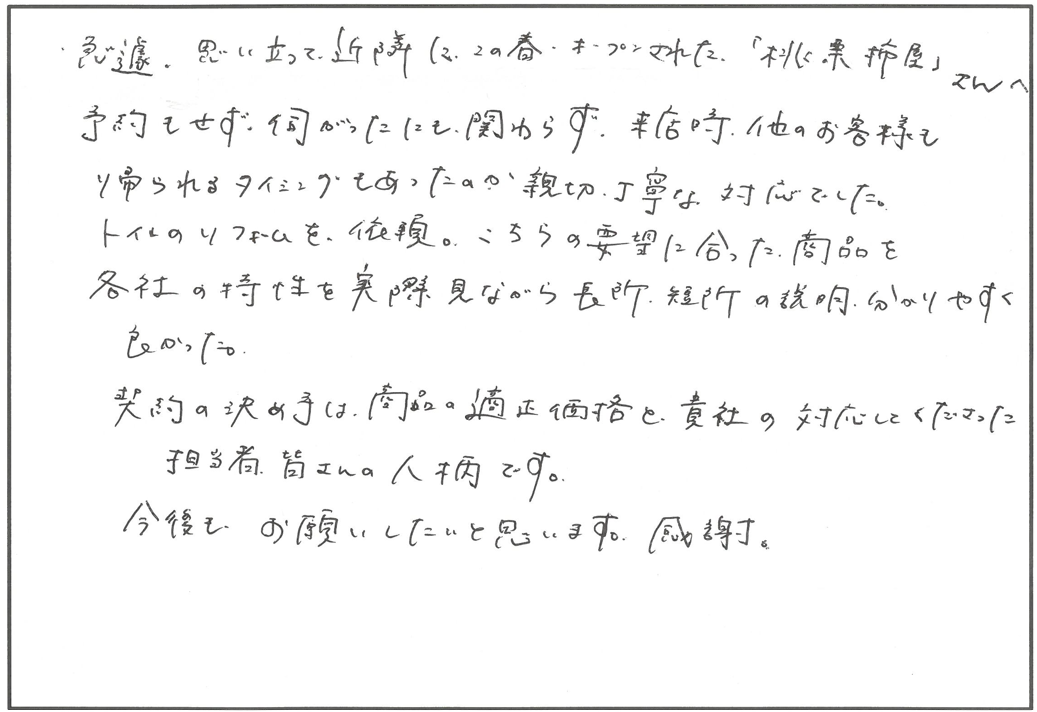 ・急遽、思い立って、近隣に、この春・オープンされた、「桃栗柿屋」さんへ
予約もせず、伺がったにも、関わらず、来店時、他のお客様も
り帰られるタイミングもあったのか親切、丁寧な、対応でした。
トイレのリフォームを、依頼。こちらの要望に合った、商品を
各社の特性を実際見ながら長所、短所の説明、分かりやすく
良かった。
契約の決め手は、商品の適正価格と、貴社の対応してくださった
担当者、皆さんの人柄です。
今後も、お願いしたいと思います。感謝。